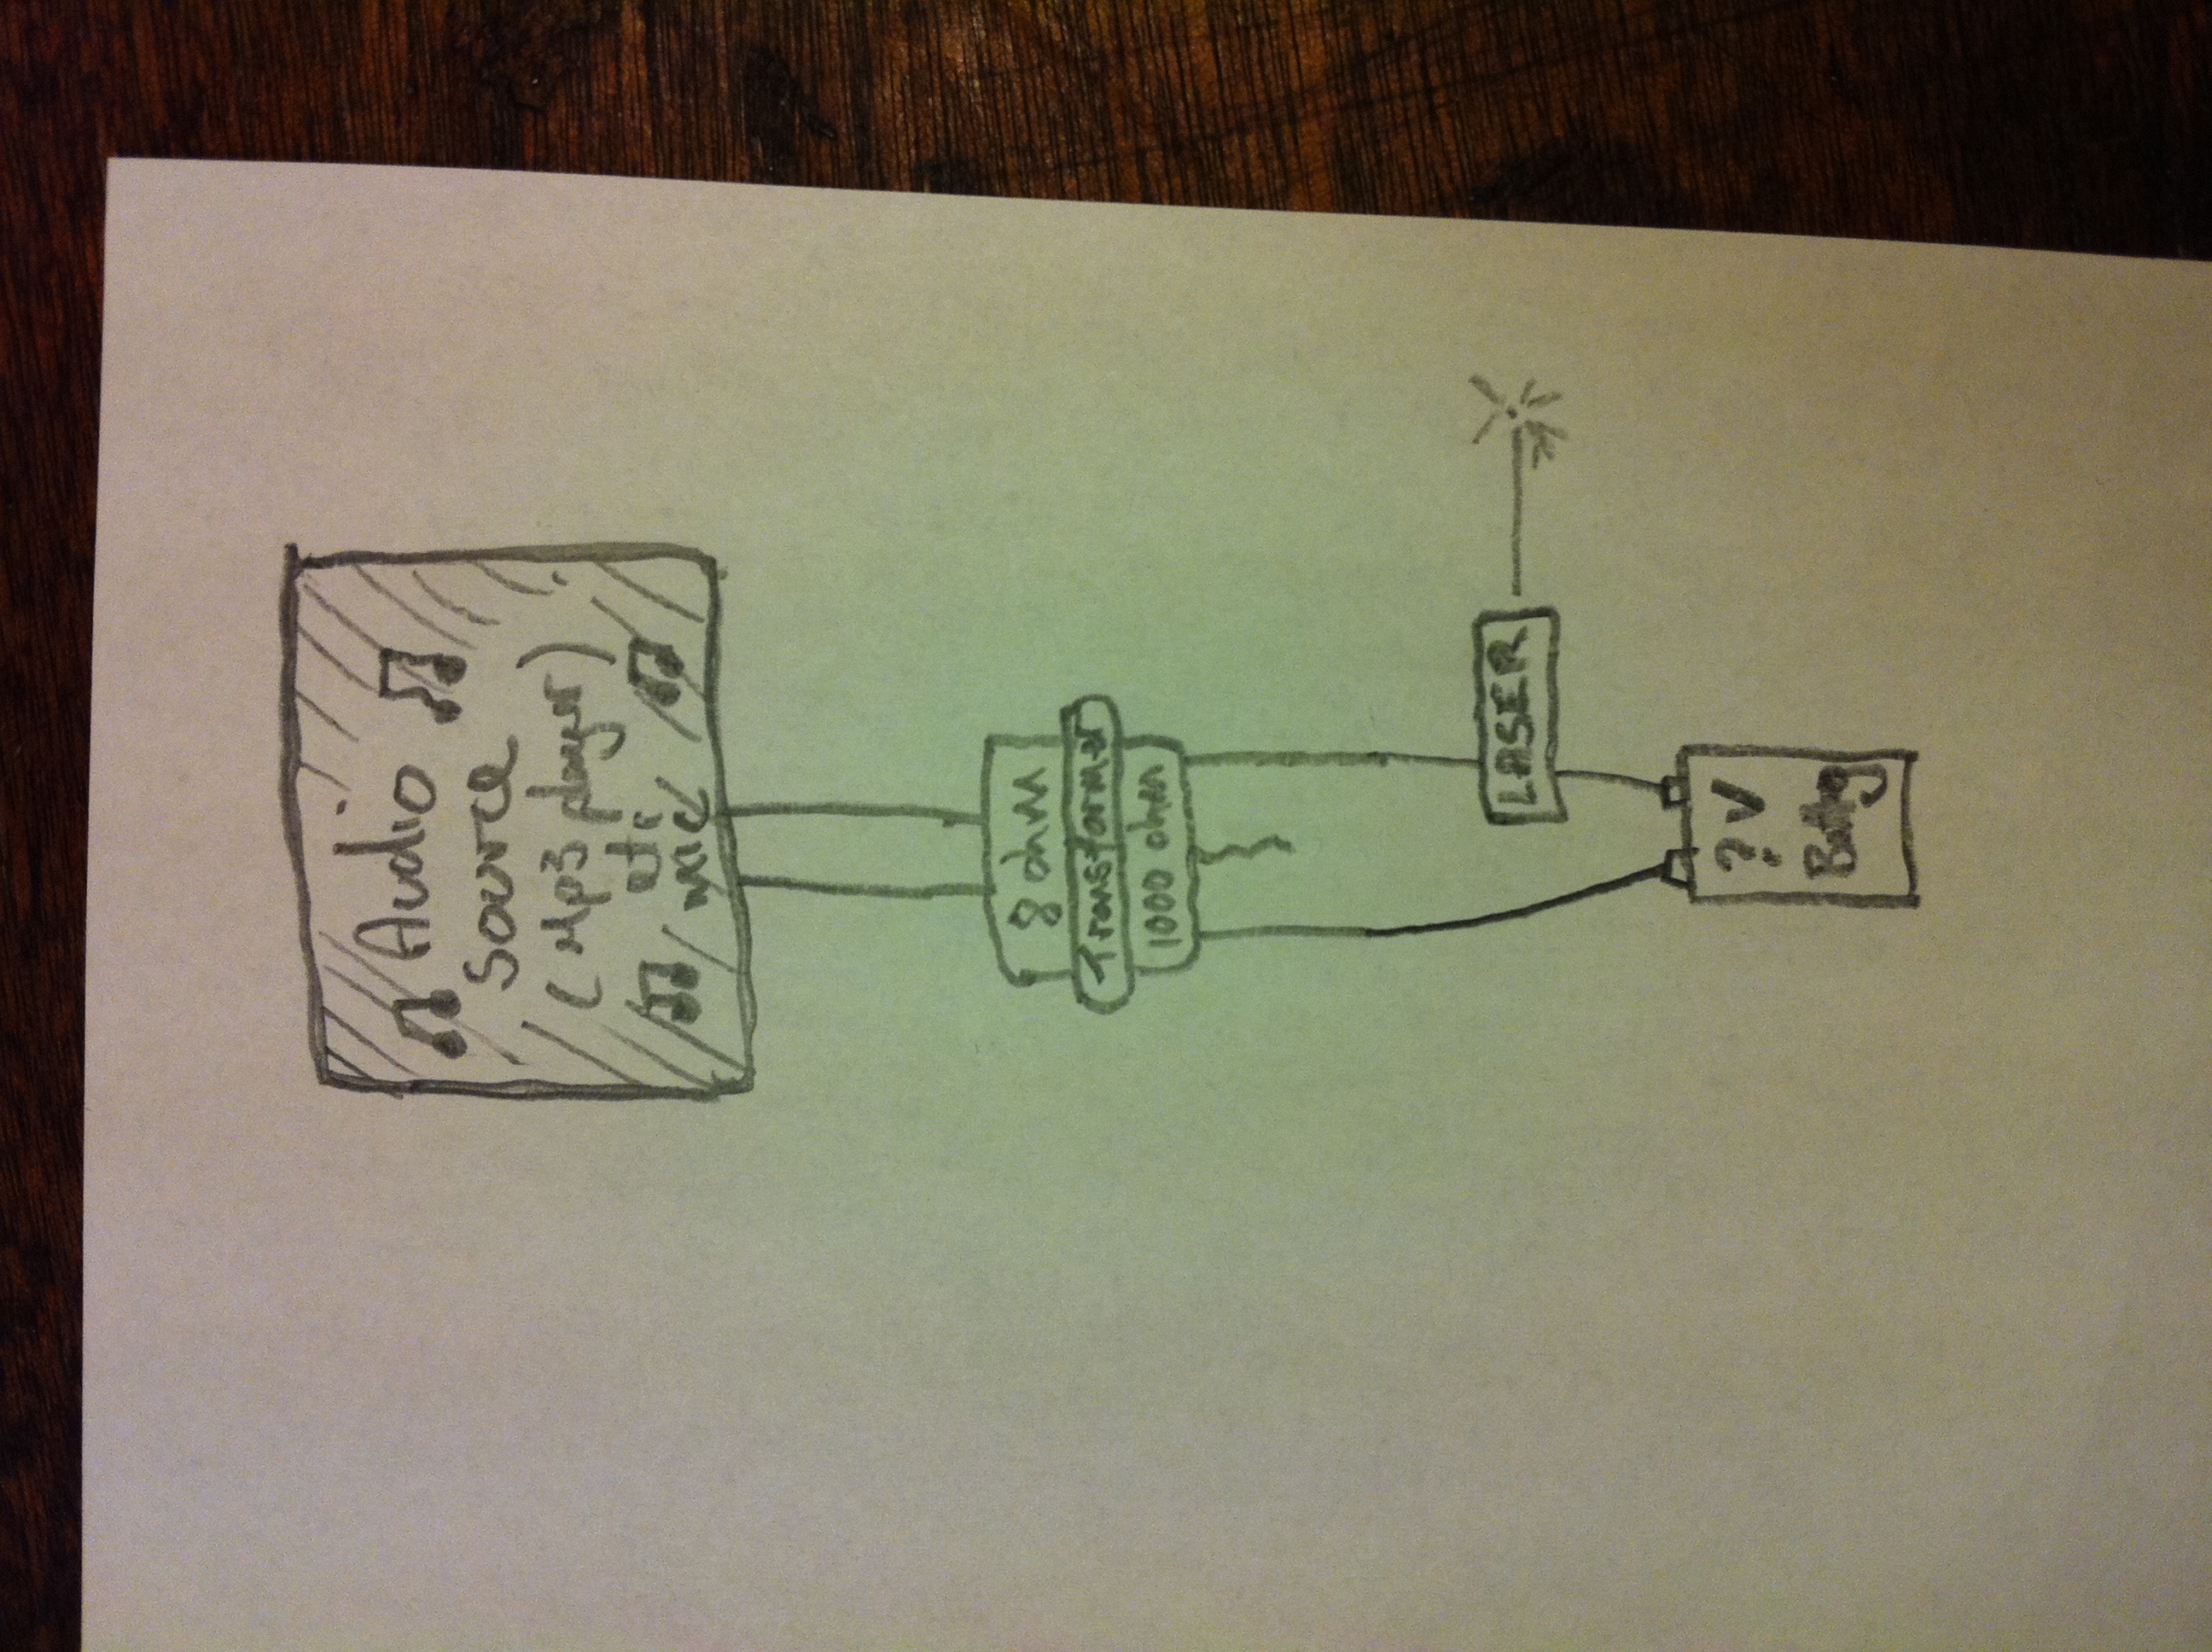 Audio
Source
(Mp3 player)
etc
mic
8 ohm
Transformer
1000 ohm
LASER
?V
Battery